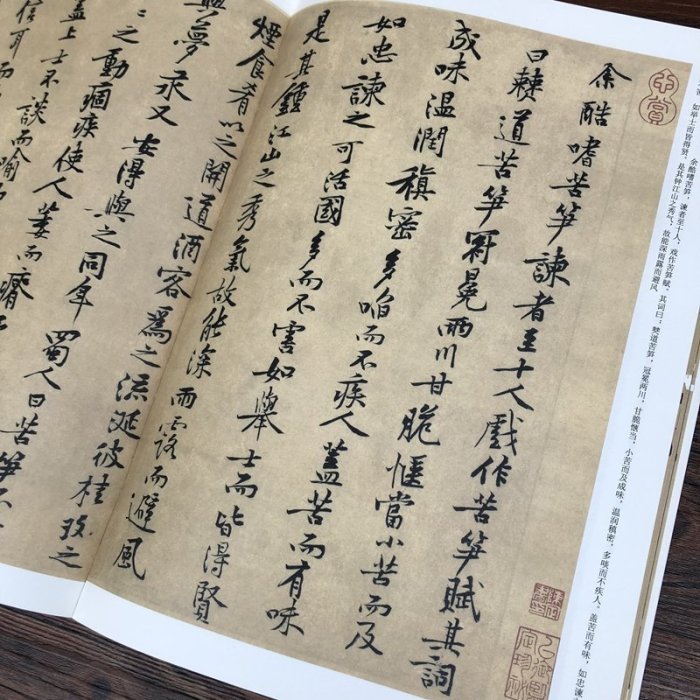 余酷嗜苦笋諫者至十人戲作苦笋賦其詞
曰僰道苦笋冠冕兩川甘脆愜當小苦而及
成味溫潤稹密多啗而不疾人蓋苦而有味
如忠諫之可活國多而不害如舉士而皆得賢
是其鍾江山之秀氣故能深雨露而避風
煙食肴以之開道酒客為之流涎彼桂玫之
與夢汞又安得與之同年蜀人曰苦笋不
之動痼疾使人萎而瘠
蓋上士不談而喻
信耳而
余酷嗜苦笋,谏者至十人,戏作苦笋赋。其词曰:僰道苦笋,冠冕两川,甘脆惬当,小苦而及成味,温润稹密,多啖而不疾人。盖苦而有味,如忠谏
如举士而皆得贤。是其钟江山之秀气,故能深雨露而避风